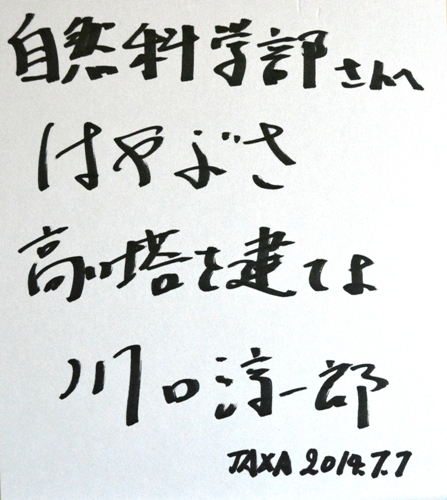 自然科学部さんへ
はやぶさ
高い塔を建てよ
川口淳一郎
JAXA 2014.7.7